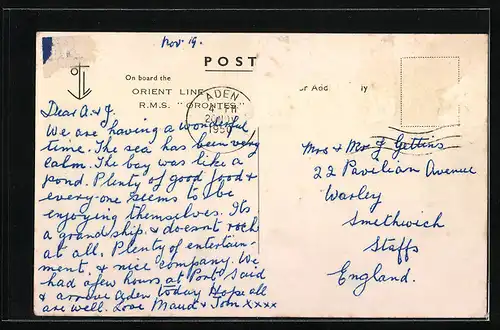 Nov. 19.
POST
On board the
ORIENT LINE
R.M.S. "ORONTES"
ADEN
4 PM
20 NO
195
Dear A. & J.
We are having a wonderful
time. The sea has been very
calm. The bay was like a
pond. Plenty of good food &
every-one seems to be
enjoying themselves. Its
a grand ship. & doesnt rock
at all. Plenty of entertain-
ment. & nice company. We
had a few hours at Port Said
& arrive Aden today Hope all
are well. Love Maud & Tom xxxx
or Add
ly
Mrs & Mr J Gettins
22 Pavilian Avenue
Warley
Smethwich
Staffs
England.